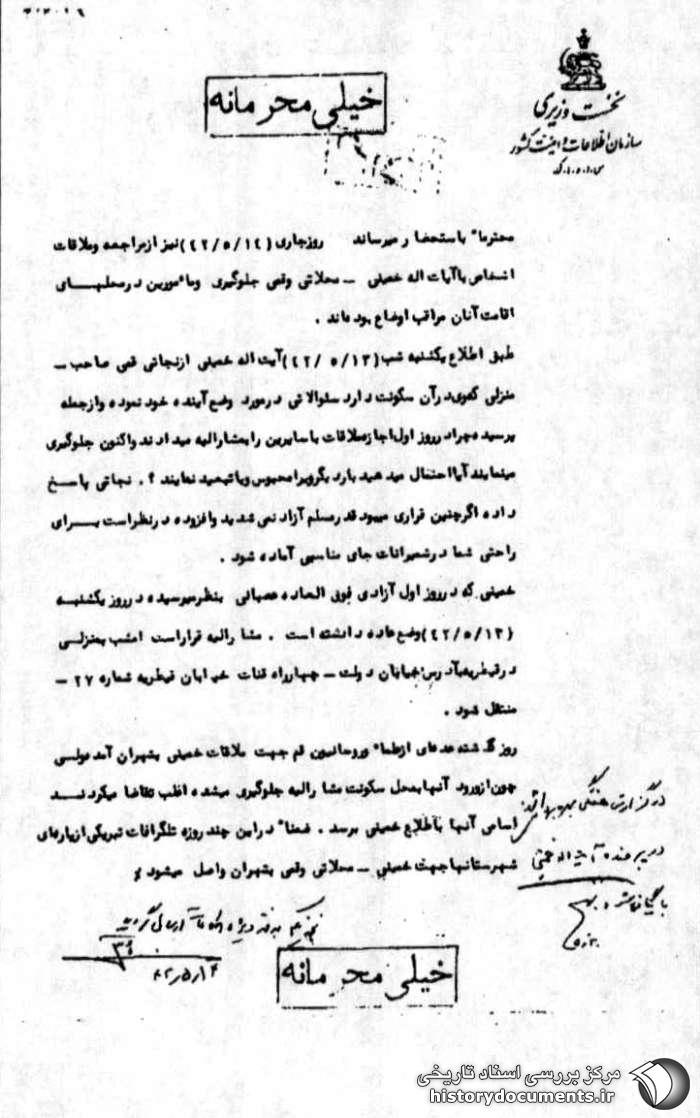 خیلی محرمانه
نخست وزیری
سازمان اطلاعات و امنیت کشور
محترما" باستحضار میرساند روزجاری (۴۲/۵/۱۴) نیز ازمراجعه وملاقات
اشخاص باآیات اله خمینی – محلاتی وقمی جلوگیری ومامورین درمحلهـای
اقامت آنان مراقب اوضاع بوده‌اند .
طبق اطلاع یکشنبه شب (۴۲/۵/۱۳) آیت اله خمینی ازنجاتی قمی صاحب –
منزلی که‌وی‌درآن سکونت دارد سئوالاتی درمورد وضع‌آینده خود نموده وازجمله
پرسیده چراد رروز اول‌اجازه‌ملاقات باسایرین رابمشارالیه میدادند واکنون جلوگیری
مینمایند آیااحتمال میدهید باردیگرویرامحبوس ویاتبعید نمایند ؟ . نجاتی پاسـخ
داده اگرچنین قراری میبود قدرمسلم آزادنمی شدید وافزوده درنظراست بـرای
راحتی شما درشمیرانات جای مناسبی آماده شود .
خمینی که درروز اول آزادی فوق العاده عصبانی بنظرمیرسیده درروز یکشنبـه
(۴۲/۵/۱۳) وضع‌عادی داشته است . مشارالیه قراراست امشب بمنزلـی
درقیطریه‌بآدرس:خیابان دولت – چهارراه قنات خیابان قیطریه شماره ۲۷ –
منتقل شود .
روز گذشته عده‌ای ازعلما" وروحانیون قم جهت ملاقات خمینی بتهران آمده‌ولـی
چون‌ازورود آنهابمحل سکونت مشارالیه جلوگیری میشده اغلب تقاضا میکردنـد
اسامی آنها باطلاع خمینی برسد . ضمنا" دراین چند روزه تلگرافات تبریکی‌ازپاره‌ای
شهرستانهاجهت خمینی – محلاتی وقمی بتهران واصل میشود
در گزارش هفتگی
در پرونده آیت اله خمینی
بایگانی شود
۴۲/۵/۱۴
خیلی محرمانه
مرکز بررسی اسناد تاریخی
historydocuments.ir